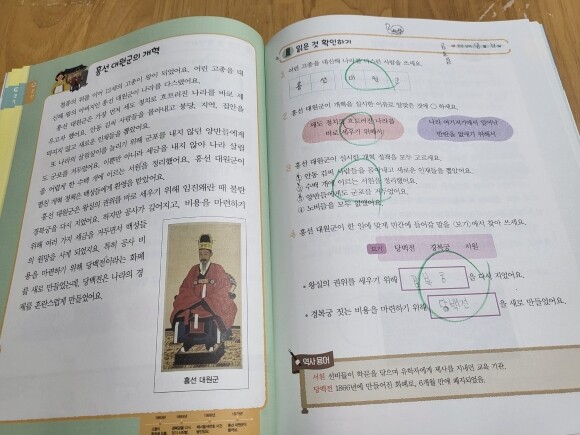 흥선 대원군의 개혁
철종의 뒤를 이어 12세의 고종이 왕이 되었어요. 어린 고종을 대
신해 왕의 아버지인 흥선 대원군이 나라를 다스렸어요.
흥선 대원군은 가장 먼저 세도 정치로 흐트러진 나라를 바로 세
우고자 했어요. 안동 김씨 사람들을 몰아내고 붕당, 지역, 집안을
따지지 않고 새로운 인재들을 뽑았어요.
또 나라의 살림살이를 늘리기 위해 군포를 내지 않던 양반들에게
도 군포를 거두었어요. 이뿐만 아니라 세금을 내지 않아 나라 살림
을 어렵게 한 수백 개에 이르는 서원을 정리했어요. 흥선 대원군이
펼친 개혁 정책은 백성들에게 환영을 받았어요.
흥선 대원군은 왕실의 권위를 바로 세우기 위해 임진왜란 때 불탄
경복궁을 다시 지었어요. 하지만 공사가 길어지고, 비용을 마련하기
위해 여러 가지 세금을 거두면서 백성들
의 원망을 사게 되었지요. 특히 공사 비
용을 마련하기 위해 당백전이라는 화폐
를 새로 만들었는데, 당백전은 나라의 경
제를 혼란스럽게 만들었어요.
흥선 대원군
읽은 것 확인하기
1 어린 고종을 대신해 나라를 다스린 사람을 쓰세요.
흥 선 대 원 군
2 흥선 대원군이 개혁을 실시한 이유로 알맞은 것에 ○ 하세요.
세도 정치로 흐트러진 나라를
바로 세우기 위해서
나라 여기저기에서 일어난
반란을 없애기 위해서
3 흥선 대원군이 실시한 개혁 정책을 모두 고르세요.
① 안동 김씨 사람들을 몰아내고 새로운 인재들을 뽑았어요.
② 수백 개에 이르는 서원을 정리했어요.
③ 양반들에게도 군포를 거두었어요.
④ 노비들을 모두 없앴어요.
4 흥선 대원군이 한 일에 맞게 빈칸에 들어갈 말을 〈보기〉에서 찾아 쓰세요.
보기 당백전 경복궁 서원
• 왕실의 권위를 세우기 위해 경복궁 을 다시 지었어요.
• 경복궁 짓는 비용을 마련하기 위해 당백전 을 새로 만들었어요.
역사 용어
서원 선비들이 학문을 닦으며 유학자에게 제사를 지내던 교육 기관.
당백전 1866년에 만들어진 화폐로, 6개월 만에 폐지되었음.